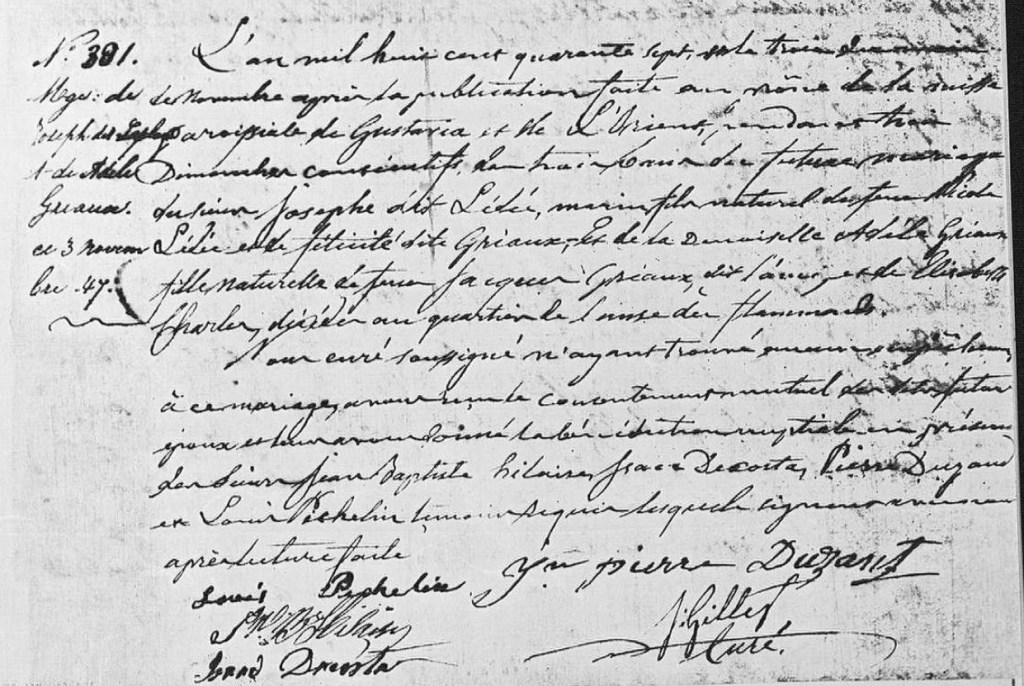 N°. 381.
Mge: de
Joseph dit Lédée
& de Adèle
Gréaux.
ce 3 novem
bre 47.
L'an mil huit cent quarante sept, et le trois du mois
de novembre après la publication faite au prône de la messe
paroissiale de Gustavia et de L'Orient, pendant trois
Dimanches consécutifs, des trois bans du futur mariage
du sieur Josephe dit Lédée, marin fils naturel de feu
Lédée et de félicité dite Gréaux, Et de la Demoiselle Adèle Gréaux
fille naturelle de feu Jacques Gréaux, dit et de Elisabeth
Charles, décédés au quartier de l'anse des flammands.
Nous curé soussigné n'ayant trouvé aucun empêchement
à ce mariage, avons reçu le consentement mutuel des dits futurs
époux et leur avons donné la bénédiction nuptiale en présence
des sieurs Jean Baptiste hilaire, Isaac Decosta, Pierre Duzant
et Louis Peshelin témoins requis lesquels signeront avec nous
après lecture faite
Yn pierre Duzant
Louis Peshelin
J. Gillet
Jn Bte Hilaire
Curé.
Decosta